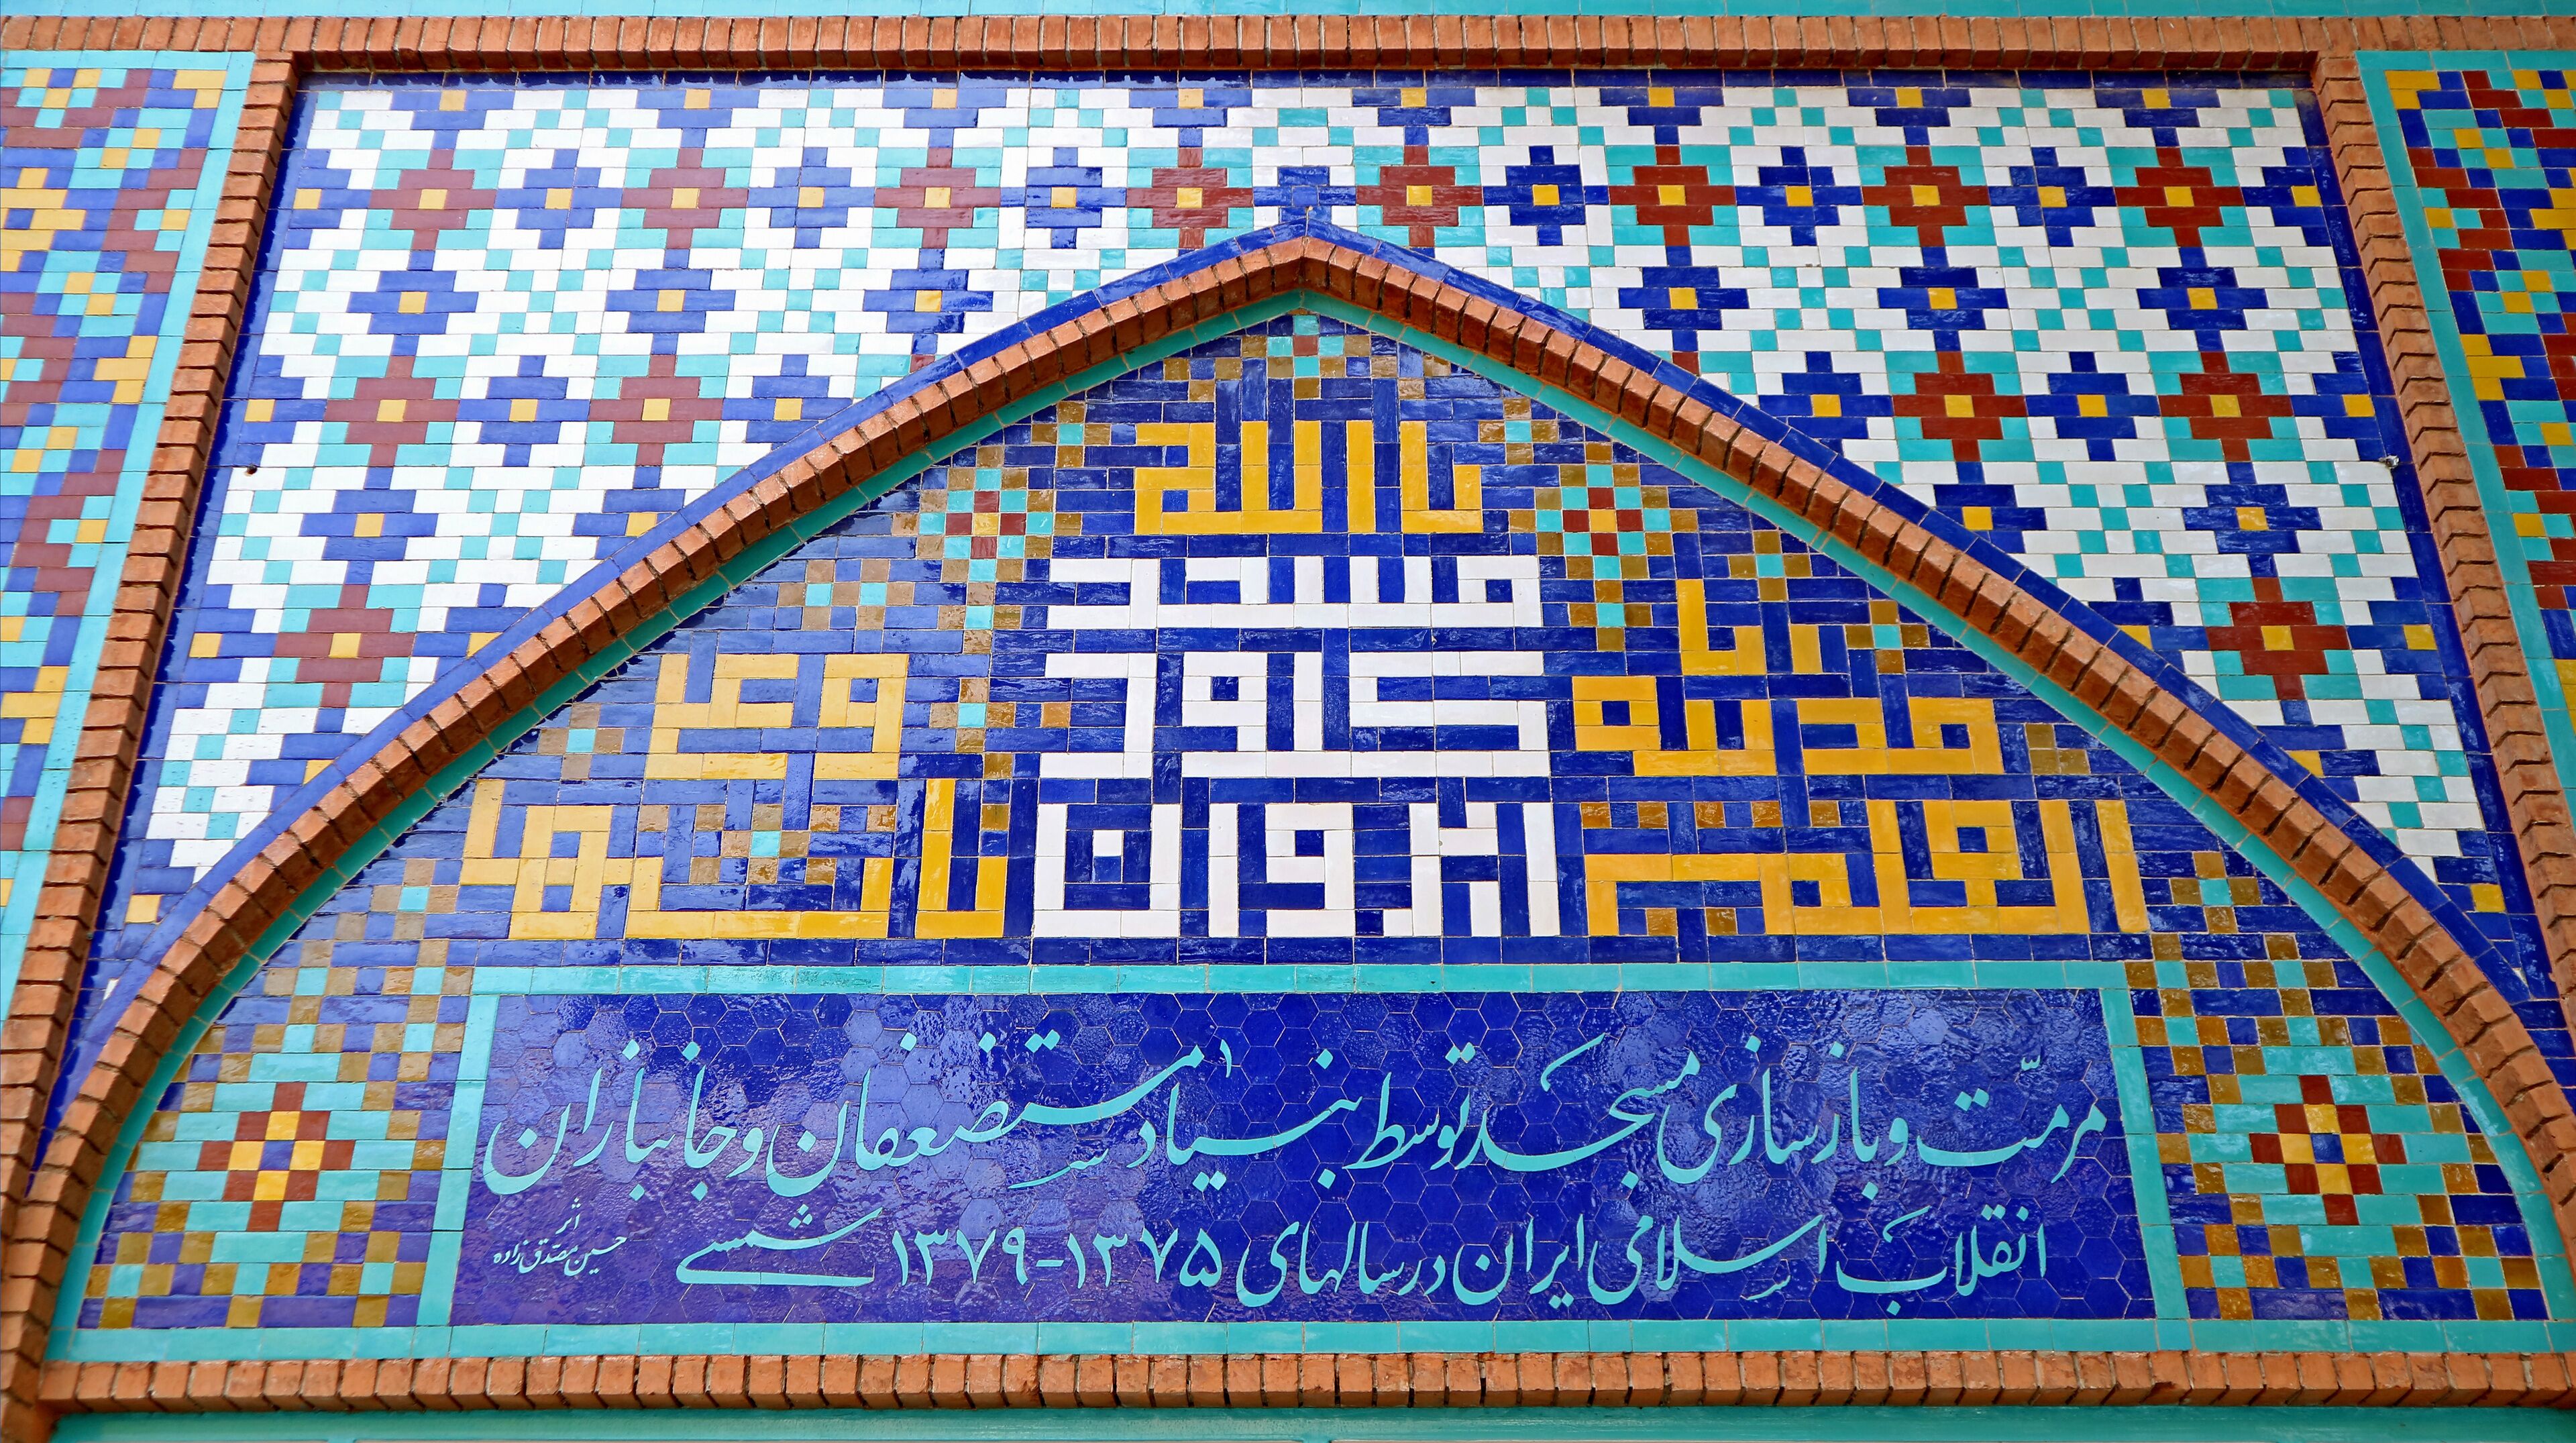 یا الله
مسجد
کبود
ایروان
انا
مدینه
العلم
و علی
بابها
مرمّت و بازسازی مسجد توسط بنیاد مستضعفان و جانبازان
انقلاب اسلامی ایران در سالهای ۱۳۷۵-۱۳۷۹ شمسی
اثر
حسین مصدّق زاده